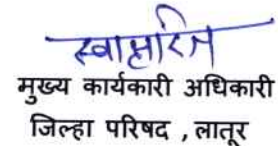 स्वाक्षरित
मुख्य कार्यकारी अधिकारी
जिल्हा परिषद , लातूर